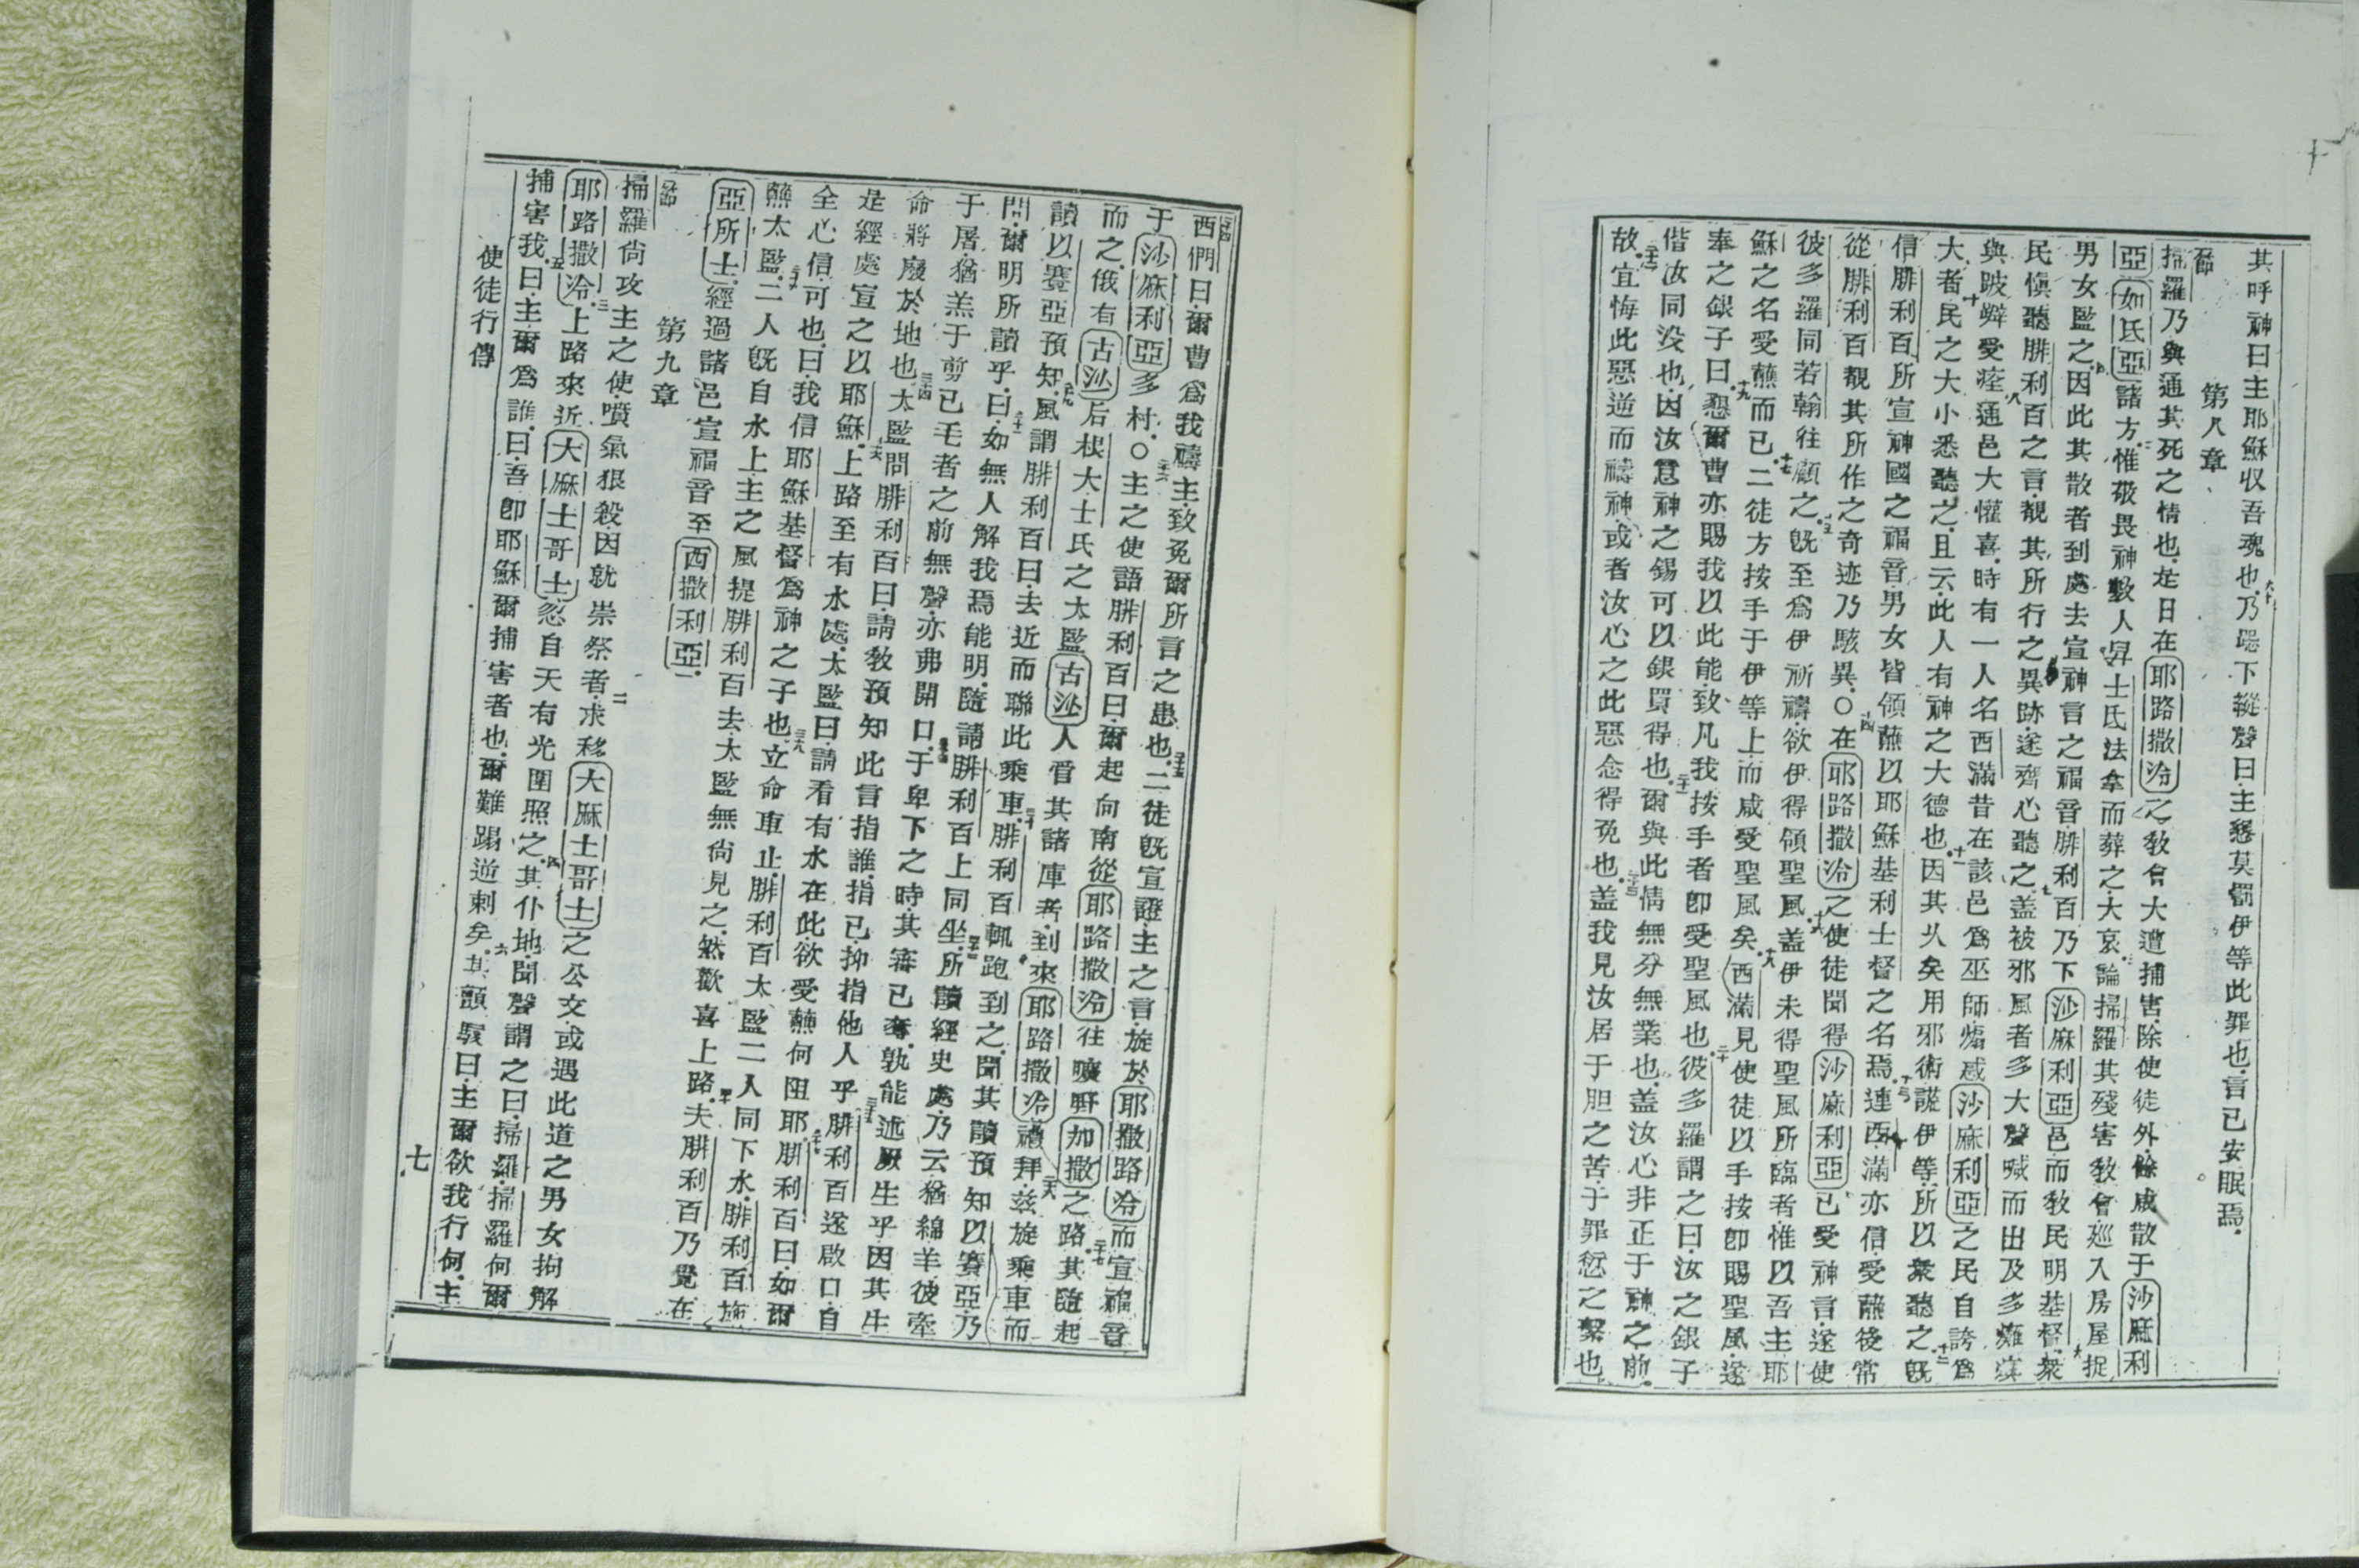 其呼神曰主耶穌収吾魂也乃跽下縱聲曰主懇莫罰伊等此罪也言已安眠焉
第八章
掃羅乃與通其死之情也是日在耶路撒冷之教會大遭捕害除使徒外餘咸散于沙麻利
亞如氏亞諸方惟敬畏神數人舁士氐法拿而葬之大哀論掃羅其殘害教會巡入房屋捉
男女監之因此其散者到處去宣神言之福音腓利百乃下沙麻利亞邑而教民明基督衆
民慎聽腓利百之言覩其所行之異跡遂齊心聽之盖被邪風者多大聲喊而出及多癱瘓
與跛躃受痊通邑大懽喜時有一人名西滿昔在該邑爲巫師煽惑沙麻利亞之民自誇爲
大者民之大小悉聽之且云此人有神之大德也因其乆矣用邪術謊伊等所以衆聽之旣
信腓利百所宣神國之福音男女皆領蘸以耶穌基利士督之名焉連西滿亦信受蘸後常
從腓利百覩其所作之奇迹乃駭異〇在耶路撒冷之使徒聞得沙麻利亞已受神言遂使
彼多羅同若翰往顧之旣至爲伊祈禱欲伊得領聖風盖伊未得聖風所臨者惟以吾主耶
穌之名受蘸而已二徒方按手于伊等上而咸受聖風矣西滿見使徒以手按卽賜聖風遂
奉之銀子曰懇爾曹亦賜我以此能致凡我按手者卽受聖風也彼多羅謂之曰汝之銀子
偕汝同没也因汝意神之錫可以銀買得也爾與此情無分無業也盖汝心非正于神之前
故宜悔此惡逆而禱神或者汝心之此惡念得免也盖我見汝居于胆之苦于罪愆之繫也
西們曰爾曹爲我禱主致免爾所言之患也二徒旣宣證主之言旋於耶撒路冷而宣福音
于沙麻利亞多村〇主之使語腓利百曰爾起向南從耶路撒冷往曠野加撒之路其隨起
而之俄有古沁后根大士氏之太監古沁人管其諸庫者到來耶路撒冷禮拜兹旋乘車而
讀以賽亞預知風謂腓利百曰去近而聯此乘車腓利百輒跑到之聞其讀預知以賽亞乃
問爾明所讀乎曰如無人解我焉能明隨請腓利百上同坐所讀經史處乃云猶綿羊彼牽
于屠猶羔于剪已毛者之前無聲亦弗開口于卑下之時其審已奪孰能述厥生乎因其生
命將廢於地也太監問腓利百曰請教預知此言指誰指己抑指他人乎腓利百遂啟口自
是經處宣之以耶穌上路至有水處太監曰請看有水在此欲受蘸何阻耶腓利百曰如爾
全心信可也曰我信耶穌基督爲神之子也立命車止腓利百太監二人同下水腓利百施
蘸太監二人旣自水上主之風提腓利百去太監無尙見之然歡喜上路夫腓利百乃覺在
亞所士經過諸邑宣福音至西撒利亞
第九章
掃羅尙攻主之使噴氣狠殺因就崇祭者求移大麻士哥士之公文或遇此道之男女拘解
耶路撒冷上路來近大麻士哥士忽自天有光圍照之其仆地聞聲謂之曰掃羅掃羅何爾
捕害我曰主爾爲誰曰吾卽耶穌爾捕害者也爾難踢逆刺矣其顫駭曰主爾欲我行何主
使徒行傳
七